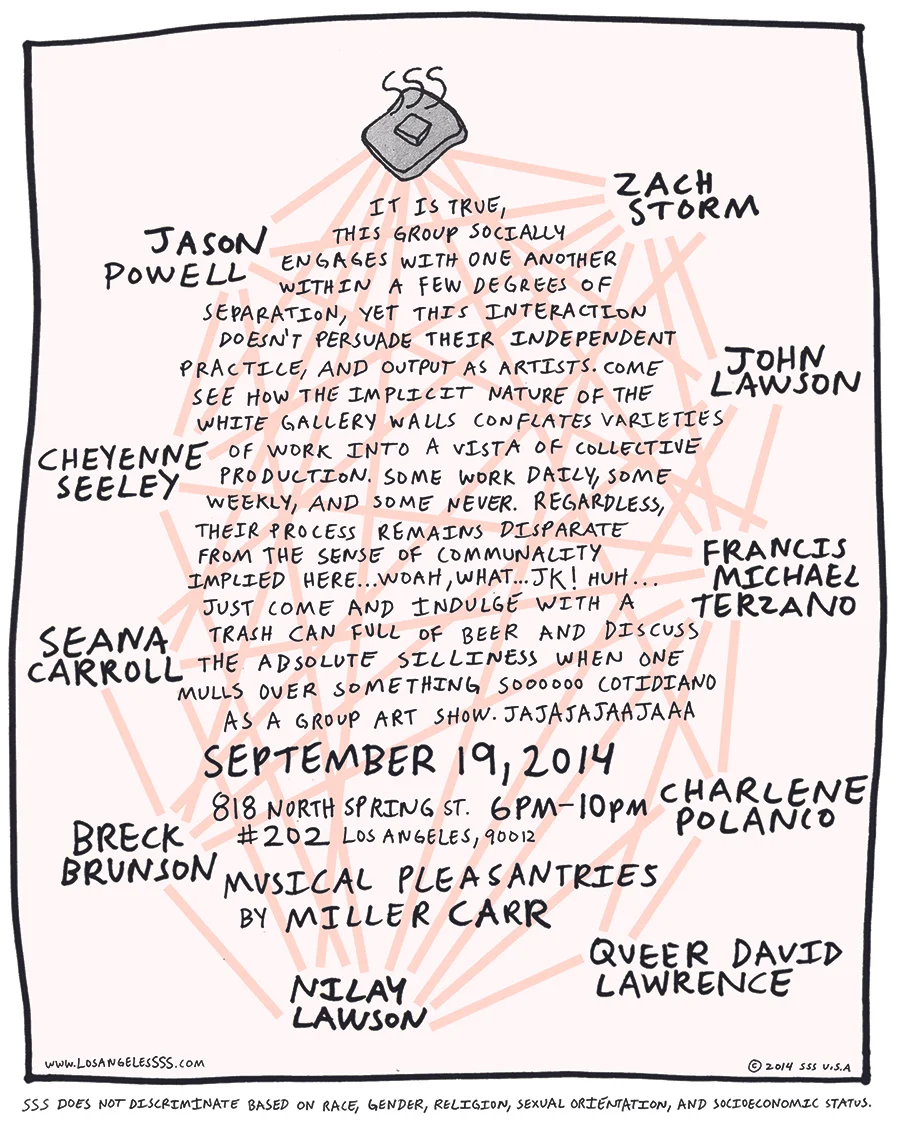 SSS
ZACH
STORM
JASON
POWELL
IT IS TRUE,
THIS GROUP SOCIALLY
ENGAGES WITH ONE ANOTHER
WITHIN A FEW DEGREES OF
SEPARATION, YET THIS INTERACTION
DOESN'T PERSUADE THEIR INDEPENDENT
PRACTICE, AND OUTPUT AS ARTISTS. COME
SEE HOW THE IMPLICIT NATURE OF THE
WHITE GALLERY WALLS CONFLATES VARIETIES
OF WORK INTO A VISTA OF COLLECTIVE
PRODUCTION. SOME WORK DAILY, SOME
WEEKLY, AND SOME NEVER. REGARDLESS,
THEIR PROCESS REMAINS DISPARATE
FROM THE SENSE OF COMMUNALITY
IMPLIED HERE...WOAH, WHAT...JK! HUH...
JUST COME AND INDULGE WITH A
TRASH CAN FULL OF BEER AND DISCUSS
THE ABSOLUTE SILLINESS WHEN ONE
MULLS OVER SOMETHING SOOOOOO COTIDIANO
AS A GROUP ART SHOW. JAJAJAJAAJAAA
JOHN
LAWSON
CHEYENNE
SEELEY
FRANCIS
MICHAEL
TERZANO
SEANA
CARROLL
SEPTEMBER 19, 2014
818 NORTH SPRING ST. 6PM-10PM
#202 LOS ANGELES, 90012
CHARLENE
POLANCO
BRECK
BRUNSON
MUSICAL PLEASANTRIES
BY MILLER CARR
QUEER DAVID
LAWRENCE
NILAY
LAWSON
WWW.LOSANGELESSSS.COM
© 2014 SSS U.S.A
SSS DOES NOT DISCRIMINATE BASED ON RACE, GENDER, RELIGION, SEXUAL ORIENTATION, AND SOCIOECONOMIC STATUS.